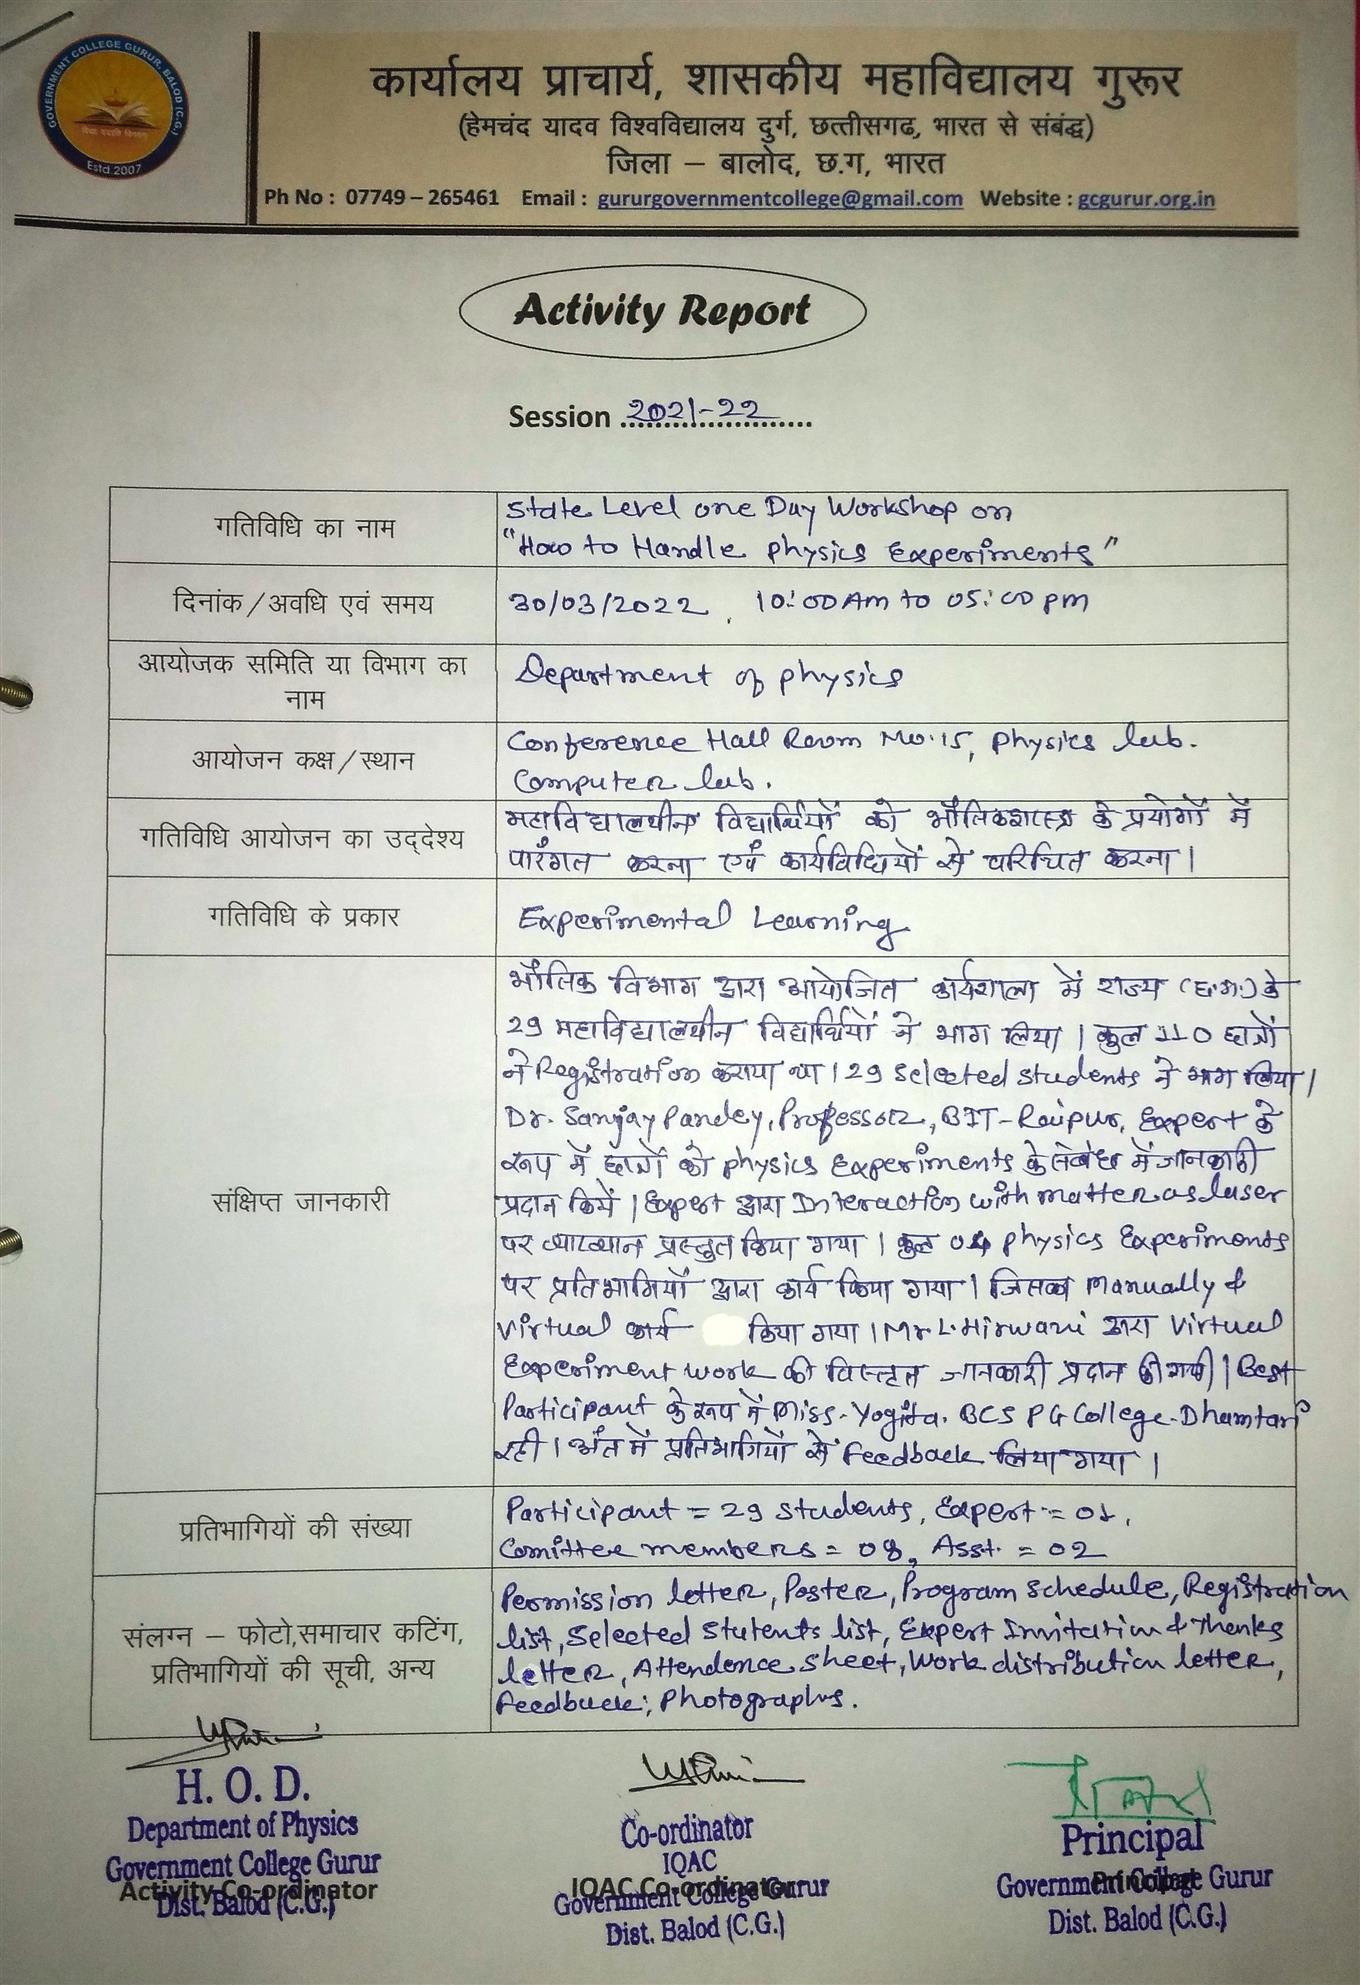 GOVERNMENT COLLEGE GURUR, BALOD (C.G.)
विद्या ददाति विनयम्
Estd.2007
कार्यालय प्राचार्य, शासकीय महाविद्यालय गुरूर
(हेमचंद यादव विश्वविद्यालय दुर्ग, छत्तीसगढ, भारत से संबंद्ध)
जिला – बालोद, छ.ग, भारत
Ph No : 07749 – 265461 Email : gururgovernmentcollege@gmail.com Website : gcgurur.org.in
Activity Report
Session 2021-22
गतिविधि का नाम
State Level one Day Workshop on
"How to Handle physics Experiments"
दिनांक/अवधि एवं समय
30/03/2022, 10:00 Am to 05:00 pm
आयोजक समिति या विभाग का
नाम
Department of physics
आयोजन कक्ष/स्थान
Conference Hall Room No.15, physics lab.
Computer lab.
गतिविधि आयोजन का उद्देश्य
महाविद्यालयीन विद्यार्थियों को भौतिकशास्त्र के प्रयोगों में
पारंगत करना एवं कार्यविधियों से परिचित करना।
गतिविधि के प्रकार
Experimental Learning
संक्षिप्त जानकारी
भौतिक विभाग द्वारा आयोजित कार्यशाला में राज्य (छ.ग.) के
29 महाविद्यालयीन विद्यार्थियों ने भाग लिया। कुल 110 छात्रों
ने Registration कराया था। 29 selected students ने भाग लिया।
Dr. Sanjay Pandey, Professor, BIT-Raipur, Expert के
रूप में छात्रों को physics Experiments के संबंध में जानकारी
प्रदान किये। Expert द्वारा Interaction with matter as laser
पर व्याख्यान प्रस्तुत किया गया। कुल 04 physics Experiments
पर प्रतिभागियों द्वारा कार्य किया गया। जिसका Manually &
Virtual कार्य किया गया। Mr. L. Hirwani द्वारा Virtual
Experiment work की विस्तृत जानकारी प्रदान की गयी। Best
Participant के रूप में Miss. Yogita. BCS PG College-Dhamtari
रही। अंत में प्रतिभागियों से Feedback लिया गया।
प्रतिभागियों की संख्या
Participant = 29 students, Expert = 01,
Comittee members = 08, Asst. = 02
संलग्न – फोटो,समाचार कटिंग,
प्रतिभागियों की सूची, अन्य
Permission letter, Poster, Program schedule, Registration
list, Selected Stutents list, Expert Invitation & Thanks
letter, Attendence sheet, Work distribution letter,
Feedback, Photographs.
H. O. D.
Department of Physics
Government College Gurur
Activity Co-ordinator
Dist. Balod (C.G.)
Co-ordinator
IQAC
IQAC Co-ordinator
Government College Gurur
Dist. Balod (C.G.)
Principal
Government College Gurur
Principal
Dist. Balod (C.G.)